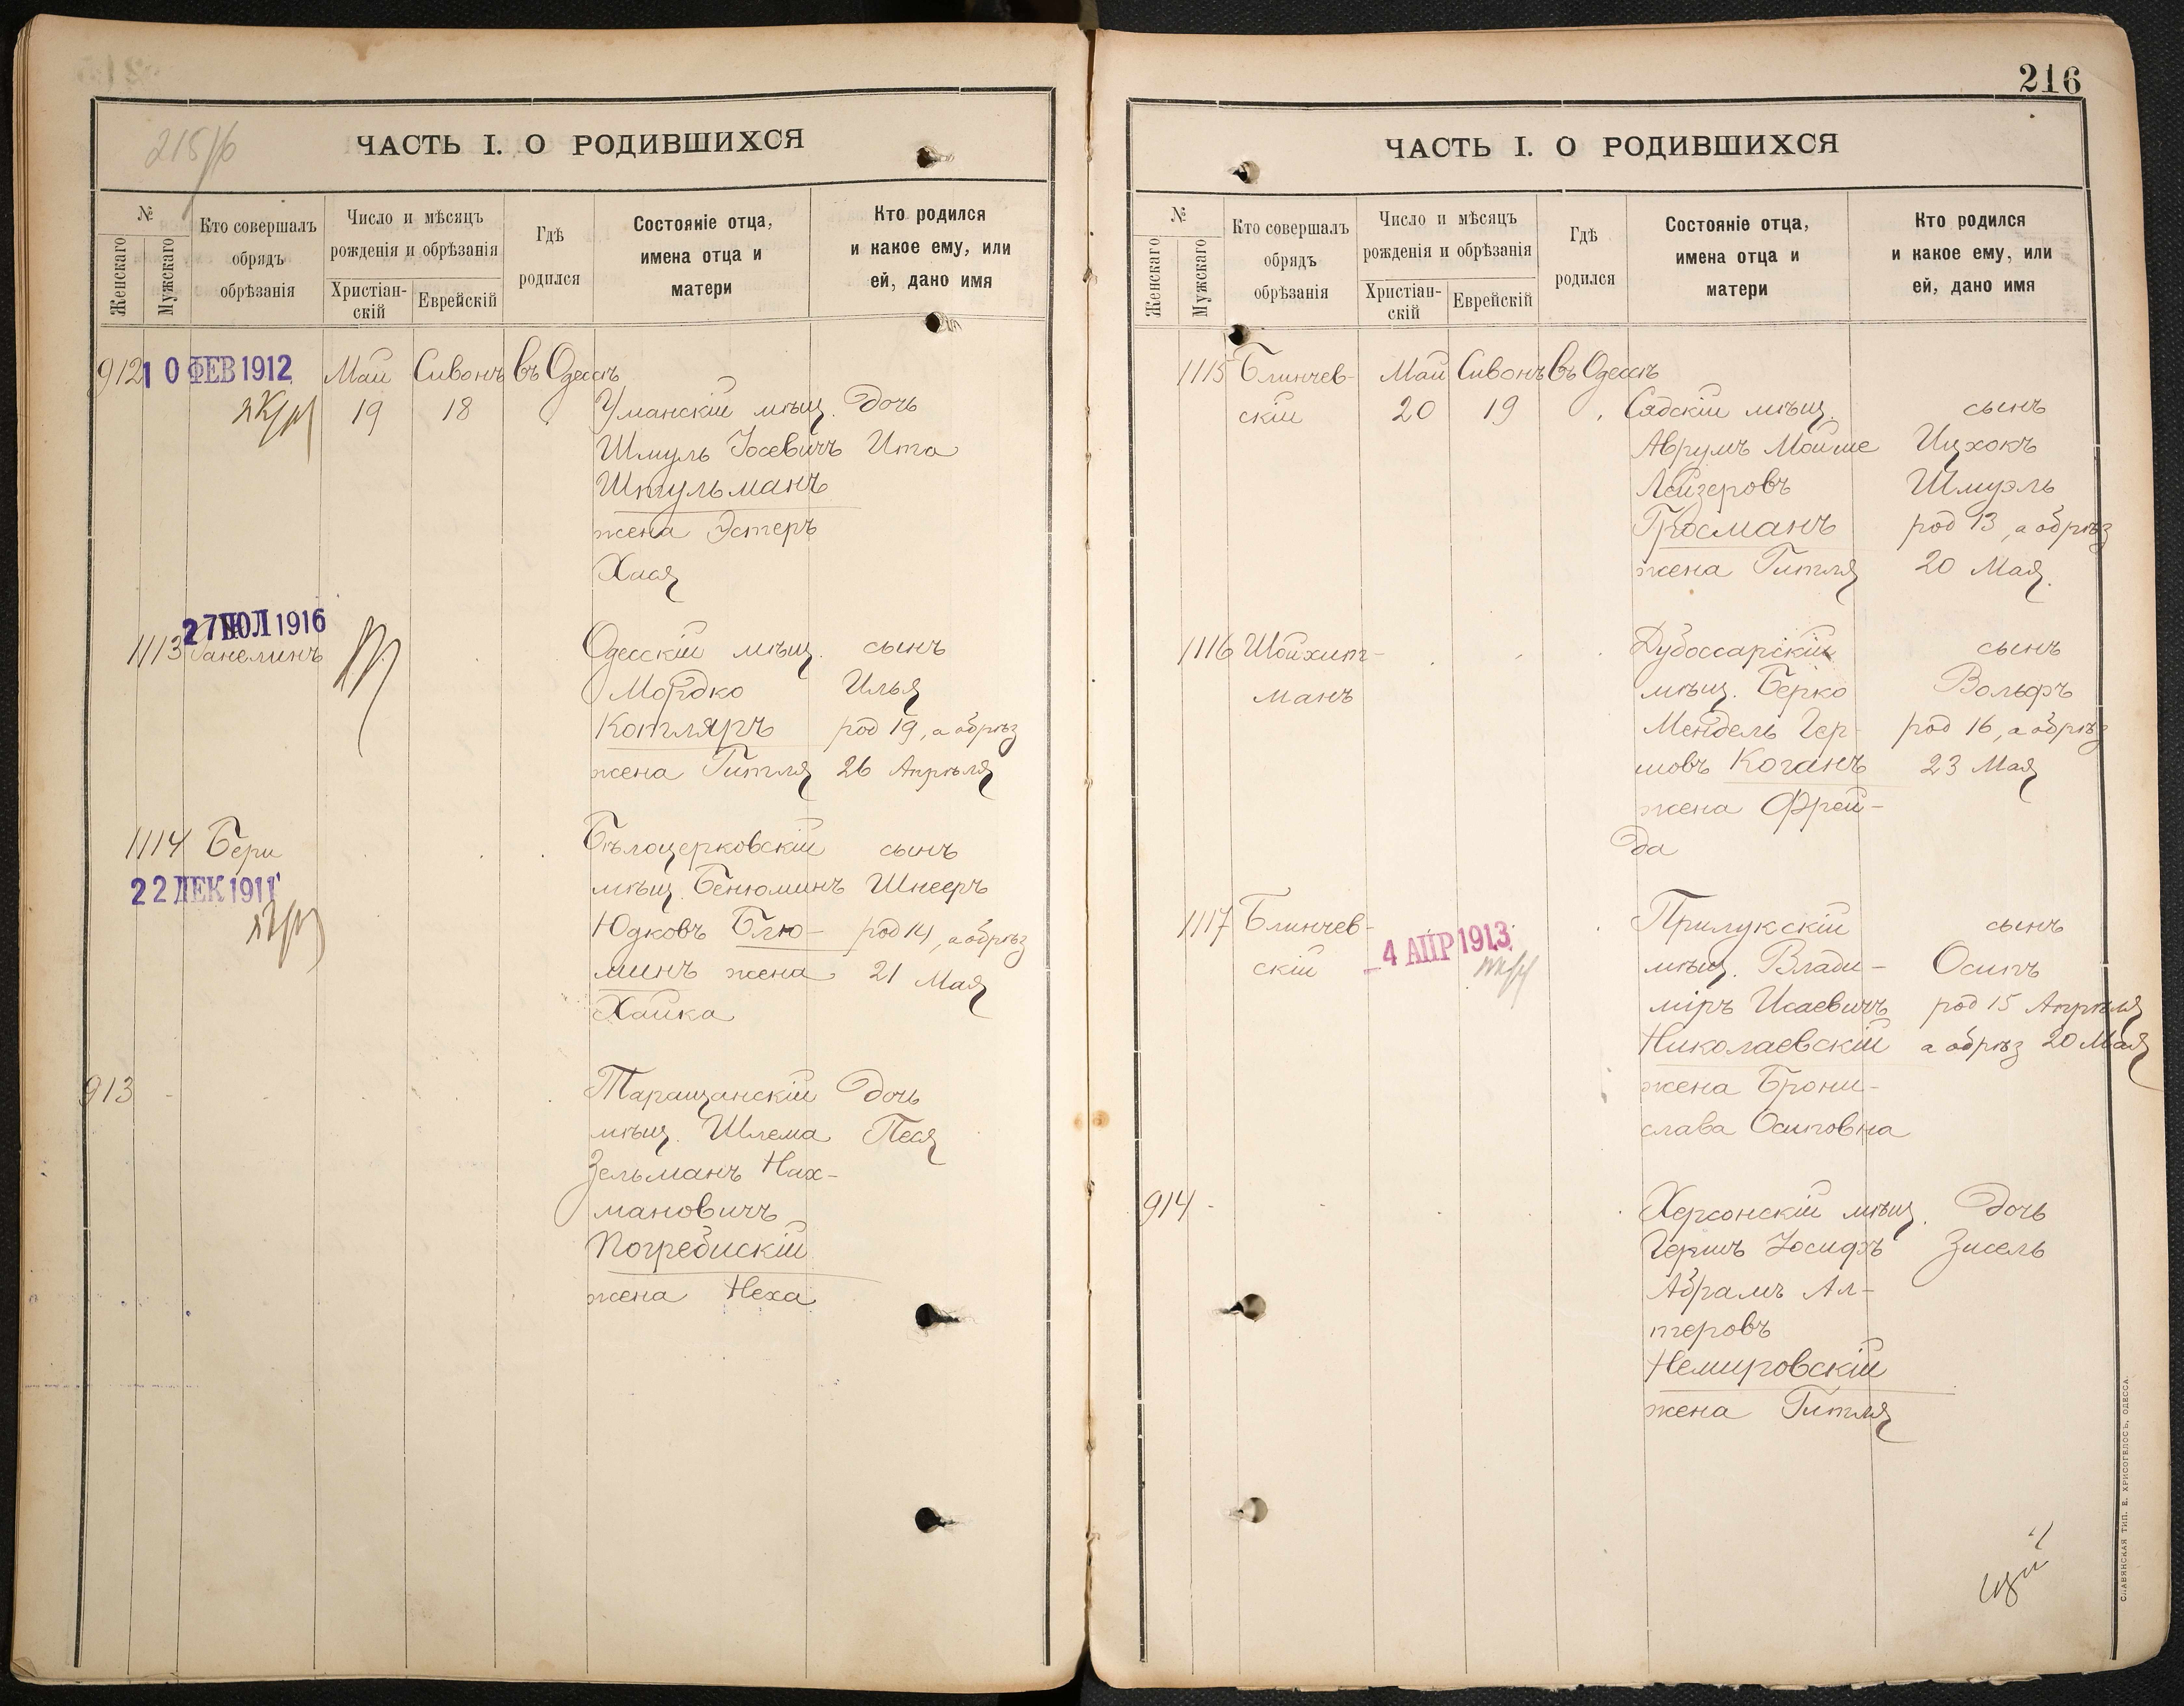 215/b
ЧАСТЬ I. О РОДИВШИХСЯ
№
Женскаго
Мужскаго
Кто совершалъ
обрядъ
обрѣзанія
Число и мѣсяцъ
рожденія и обрѣзанія
Христіан-
скій
Еврейскій
Гдѣ
родился
Состояніе отца,
имена отца и
матери
Кто родился
и какое ему, или
ей, дано имя
912 10 ФЕВ 1912 Май Сивонъ въ Одессѣ
19 18 Уманскій мѣщ. дочь
Шмуль Іосевичъ Ита
Штульманъ
жена Эстеръ
Хася
27 ІЮЛ 1916
1113 Ганелинъ Одесскій мѣщ. сынъ
Мордко Илья
Котляръ род 19, а обрѣз
жена Гитля 26 Апрѣля
1114 Бери Бѣлоцерковскій сынъ
22 ДЕК 1911 мѣщ. Бенюминъ Шнееръ
Юдковъ Блю- род 14, а обрѣз
минъ жена 21 Мая
Хайка
913 Таращанскій дочь
мѣщ. Шлема Песя
Зельманъ Нах-
мановичъ
Погребискій
жена Неха
216
ЧАСТЬ I. О РОДИВШИХСЯ
№
Женскаго
Мужскаго
Кто совершалъ
обрядъ
обрѣзанія
Число и мѣсяцъ
рожденія и обрѣзанія
Христіан-
скій
Еврейскій
Гдѣ
родился
Состояніе отца,
имена отца и
матери
Кто родился
и какое ему, или
ей, дано имя
1115 Блинчев- Май Сивонъ въ Одессѣ
скій 20 19 Сядскій мѣщ. сынъ
Аврумъ Мойше Ицхокъ
Лейзеровъ Шмуэль
Гросманъ род 13, а обрѣз
жена Гитля 20 Мая.
1116 Шойхит- Дубоссарскій сынъ
манъ мѣщ. Берко Вольфъ
Мендель Гер- род 16, а обрѣз
шовъ Коганъ 23 Мая
жена Фрей-
да
1117 Блинчев- Прилукскій сынъ
скій 4 АПР 1913 мѣщ. Влади- Осипъ
міръ Исаевичъ род 15 Апрѣля
Николаевскій а обрѣз 20 Мая
жена Брони-
слава Осиповна
914 Херсонскій мѣщ. дочь
Гершъ Іосифъ Зисель
Абрамъ Ал-
теровъ
Немировскій
жена Гитля
СЛАВЯНСКАЯ ТИП. Е. ХРИСОГЕЛОСЪ, ОДЕССА.